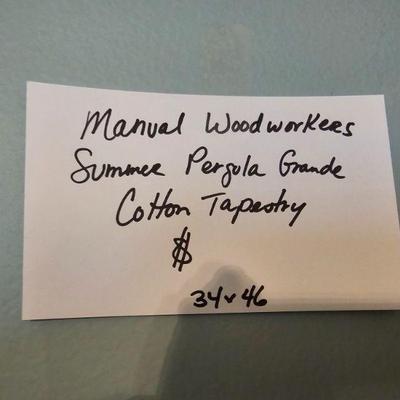 Manual Woodworkers
Summer Pergola Grande
Cotton Tapestry
$
34x46